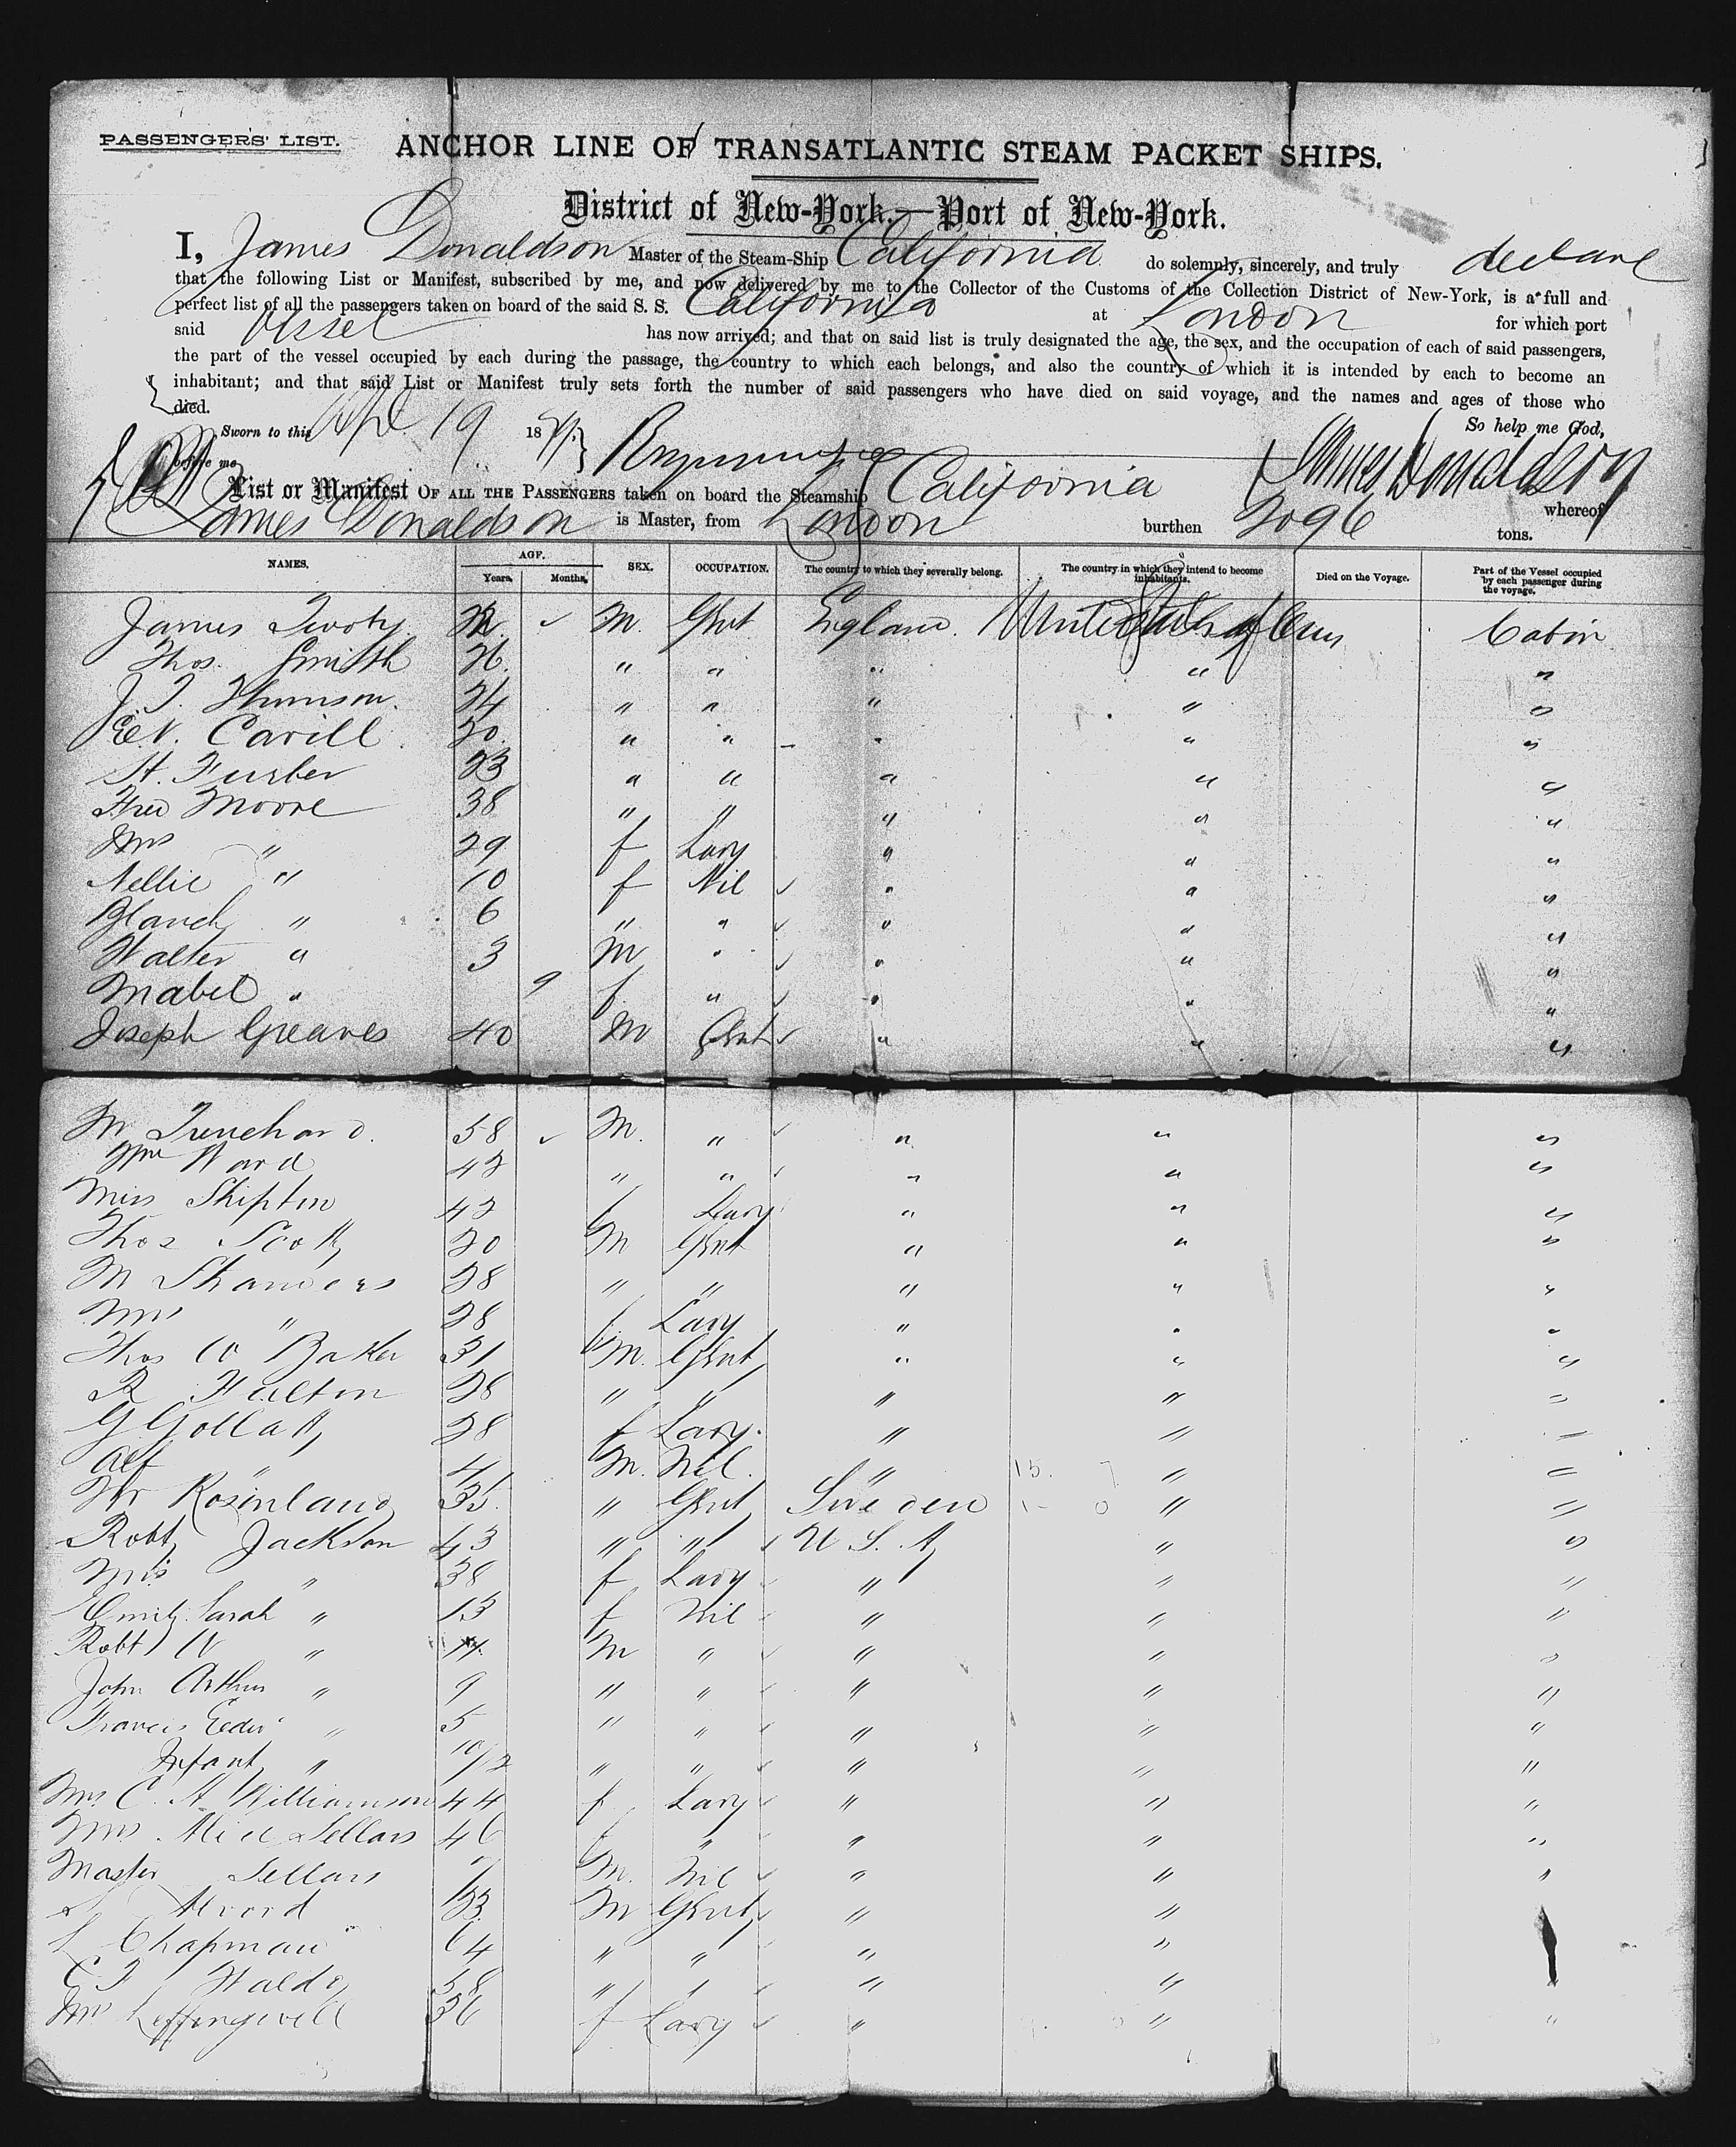 PASSENGERS' LIST.
ANCHOR LINE OF TRANSATLANTIC STEAM PACKET SHIPS.
District of New-York.—Port of New-York.
I, James Donaldson Master of the Steam-Ship California do solemnly, sincerely, and truly declare
that the following List or Manifest, subscribed by me, and now delivered by me to the Collector of the Customs of the Collection District of New-York, is a full and
perfect list of all the passengers taken on board of the said S. S. California at London for which port
said Vessel has now arrived; and that on said list is truly designated the age, the sex, and the occupation of each of said passengers,
the part of the vessel occupied by each during the passage, the country to which each belongs, and also the country of which it is intended by each to become an
inhabitant; and that said List or Manifest truly sets forth the number of said passengers who have died on said voyage, and the names and ages of those who
died.
So help me God,
Sworn to this Apl. 19 18
before me
James Donaldson
List or Manifest OF ALL THE PASSENGERS taken on board the Steamship California whereof
James Donaldson is Master, from London burthen 2096 tons.
NAMES. AGE. Years. Months. SEX. OCCUPATION. The country to which they severally belong. The country in which they intend to become inhabitants. Died on the Voyage. Part of the Vessel occupied by each passenger during the voyage.
James M. Gent England. United States of Cabin
Thos. Smith 26. " " " " "
J. T. 24 " " " " "
Cavill 20. " " " " "
H. Furber 23 " " " " "
Fred Moore 38 " " " " "
Mrs " 29 f Lady " " "
Nellie " 10 f Nil " " "
Blanch " 6 " " " " "
Walter " 3 M " " " "
Mabel " 9 f. " " " "
Joseph Greaves 40 M Gent " " "
M Trenchard. 58 M. " " " "
Wm Ward 42 " " " " "
Miss Shipton 42 f Lady " " "
Thos Scott 20 M Gent " " "
M 28 " " " " "
Mrs " 28 f. Lady " " "
Thos W Baker 31 M. Gent " " "
R Fulton 28 " " " " "
G Gollatt 28 f Lady. " " "
Alf " 4 M. Nil. " " "
Mr Rosinland 35. " Gent Sweden " "
Robt Jackson 43 " " U. S. A " "
Mrs " 38 f Lady " " "
Emily Sarah " 13 f Nil " " "
Robt W " M " " " "
John Arthur " 9 " " " " "
Francis Edw " 5 " " " " "
Infant " 10/12 " " " " "
Mrs. C. A Williamson 44 f. Lady " " "
Mrs. Sellars 46 f " " " "
Master Sellars M. Nil " " "
Alvord 33. M Gent " "
L Chapman 64 " " " "
C F Waldo 58 " " " "
Mrs Leffingwell 36 f Lady " " "